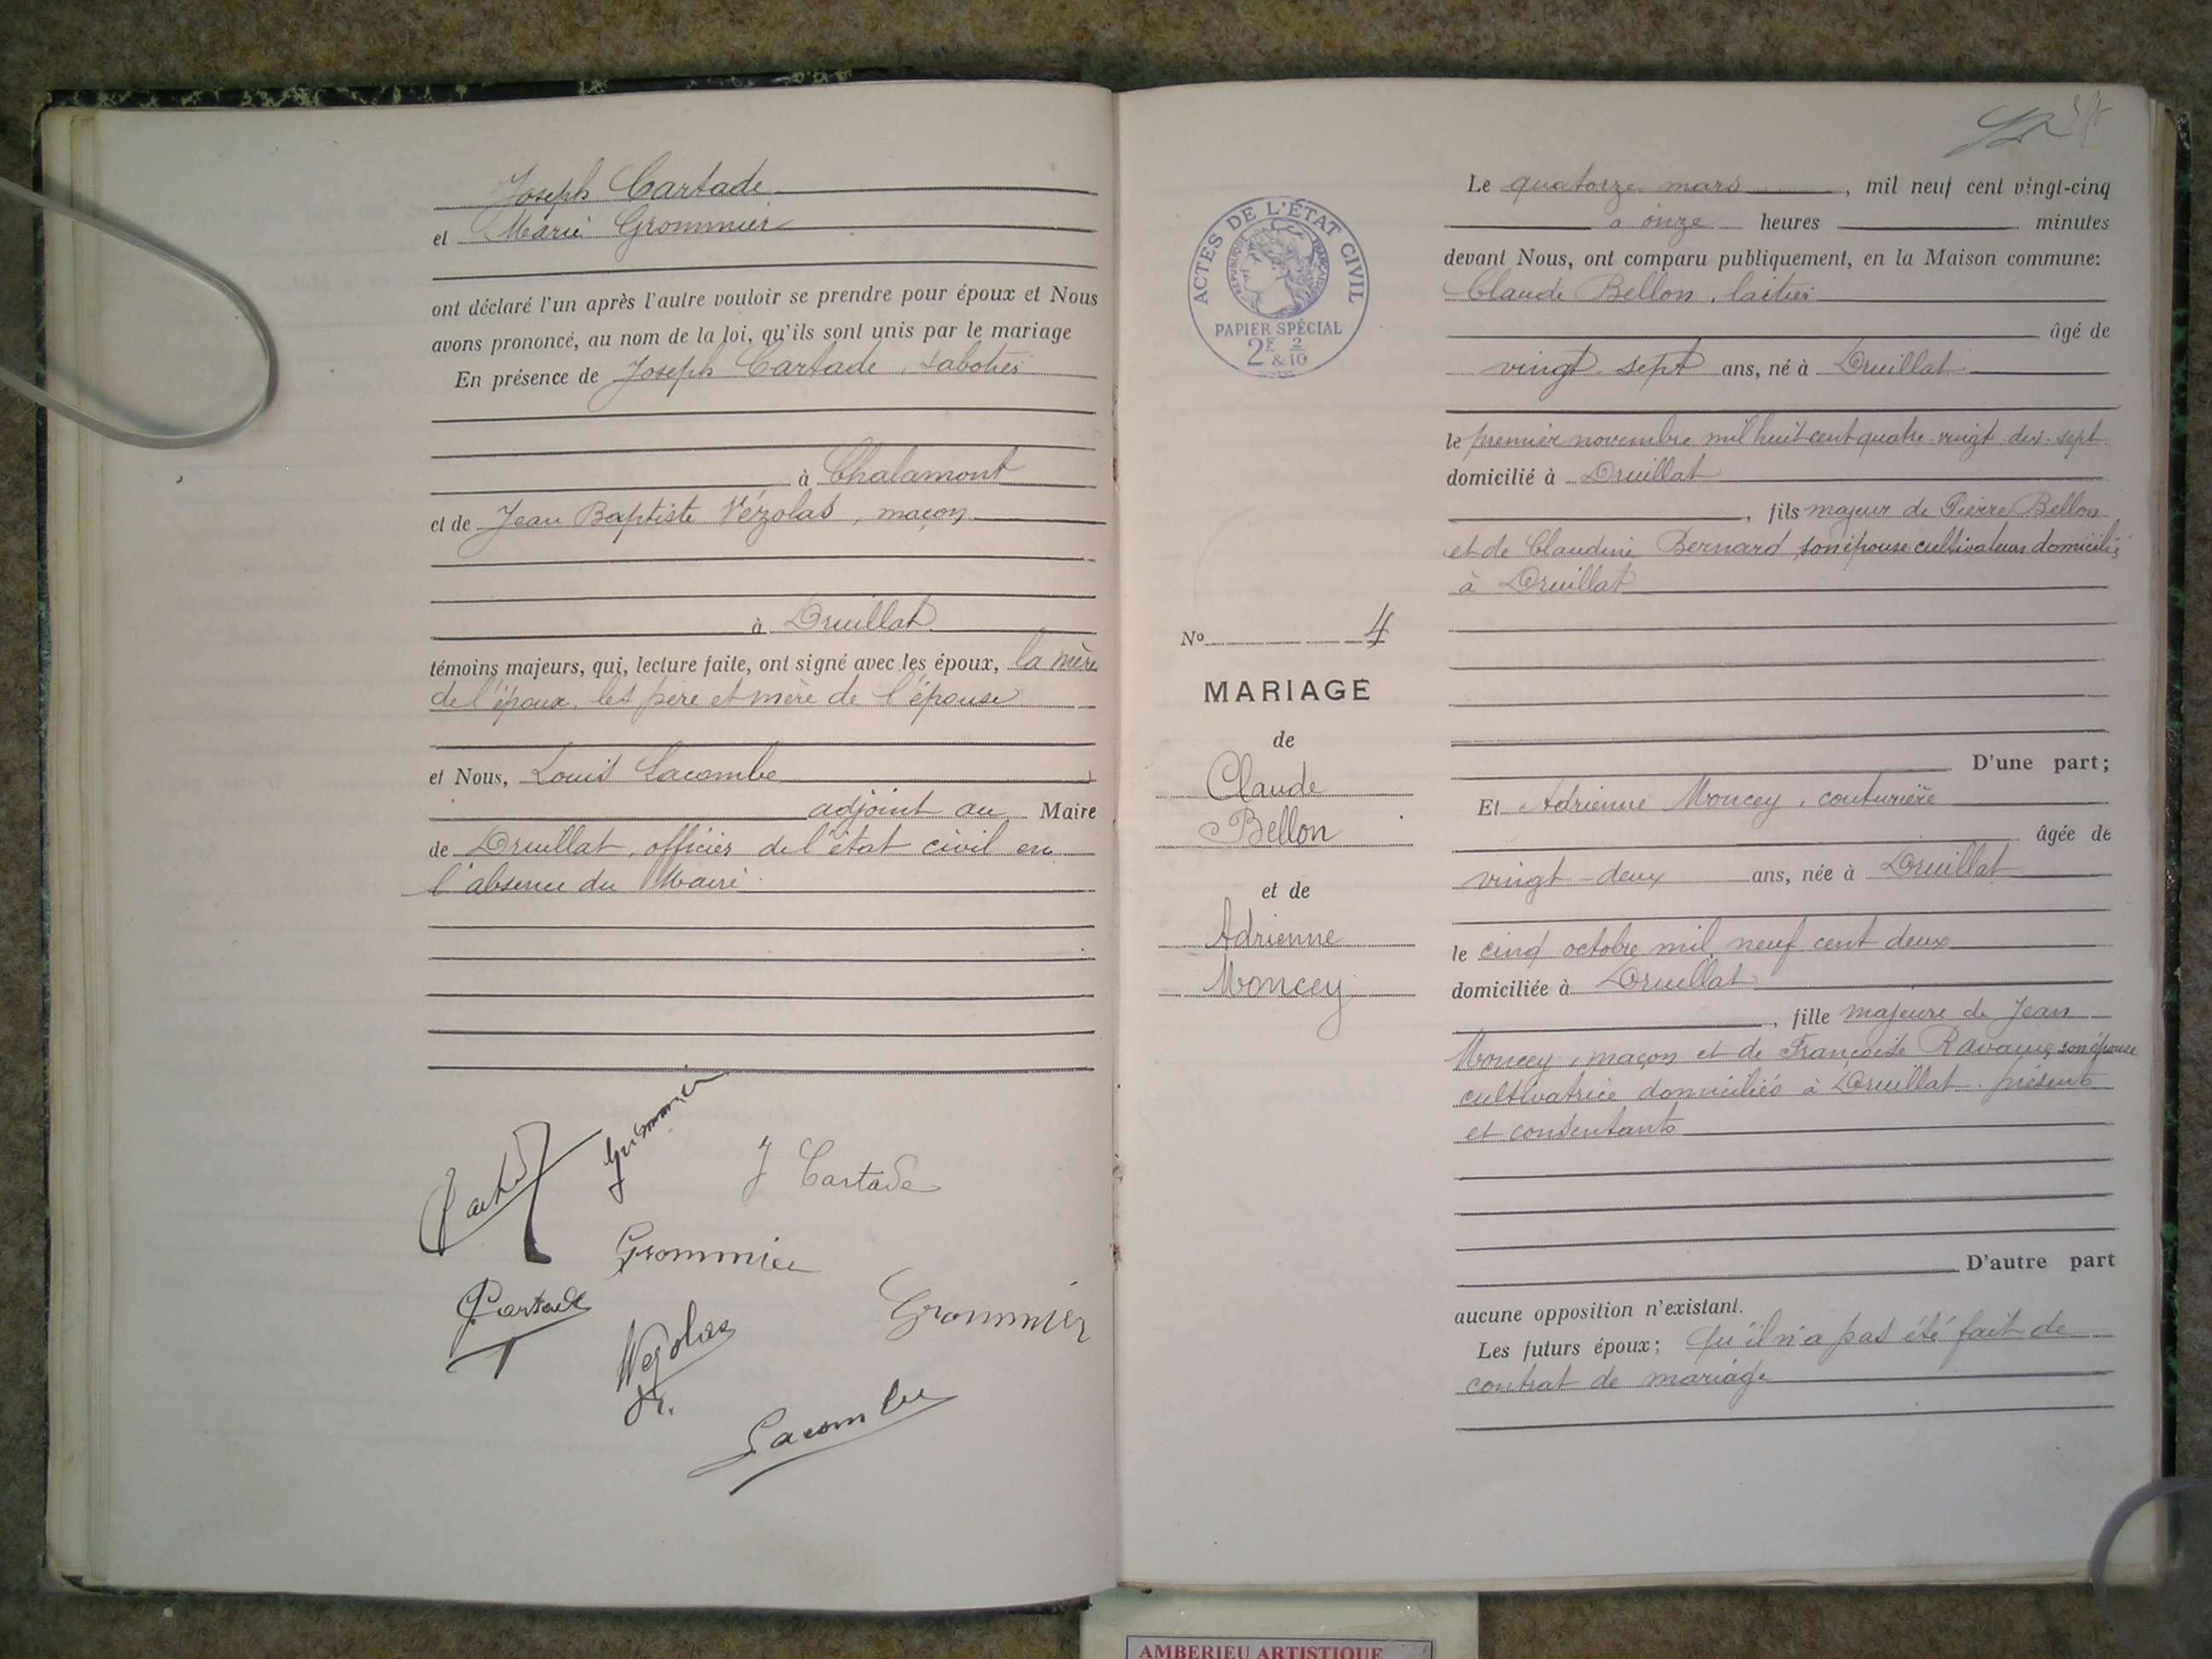 Joseph Cartade
et Marie Grommier
ont déclaré l'un après l'autre vouloir se prendre pour époux et Nous
avons prononcé, au nom de la loi, qu'ils sont unis par le mariage
En présence de Joseph Cartade, sabotier
à Chalamont
et de Jean Baptiste Vézolas, maçon
à Druillat
témoins majeurs, qui, lecture faite, ont signé avec les époux, la mère
de l'époux, les père et mère de l'épouse
et Nous, Louis Lacombe
adjoint au Maire
de Druillat, officier de l'état civil en
l'absence du Maire.
Grommier
J Cartade
Grommier
Cartade
Grommier
Vezolas
Lacombe
ACTES DE L'ÉTAT CIVIL
RÉPUBLIQUE FRANÇAISE
PAPIER SPÉCIAL
2F 2
& 10
No 4
MARIAGE
de
Claude
Bellon
et de
Adrienne
Moncey
Le quatorze mars, mil neuf cent vingt-cinq
a onze heures minutes
devant Nous, ont comparu publiquement, en la Maison commune:
Claude Bellon, laitier
âgé de
vingt-sept ans, né à Druillat
le premier novembre mil huit cent quatre-vingt-dix-sept
domicilié à Druillat
, fils majeur de Pierre Bellon
et de Claudine Bernard, son épouse cultivateurs domiciliés
à Druillat
D'une part;
Et Adrienne Moncey, couturière
âgée de
vingt-deux ans, née à Druillat
le cinq octobre mil neuf cent deux
domiciliée à Druillat
, fille majeure de Jean
Moncey, maçon et de Françoise son épouse
cultivatrice domiciliés à Druillat. présents
et consentants
D'autre part
aucune opposition n'existant.
Les futurs époux; qu'il n'a pas été fait de
contrat de mariage
AMBERIEU ARTISTIQUE